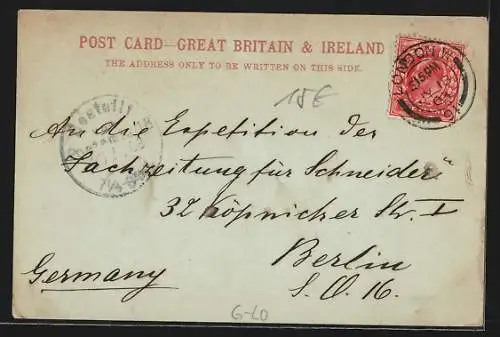 POST CARD—GREAT BRITAIN & IRELAND
THE ADDRESS ONLY TO BE WRITTEN ON THIS SIDE.
15E
LONDON
Bestellt
An die Expetition der
"Fachzeitung für Schneider"
32 Köpnicker Str. I
Berlin
S.O. 16.
Germany
G-LO